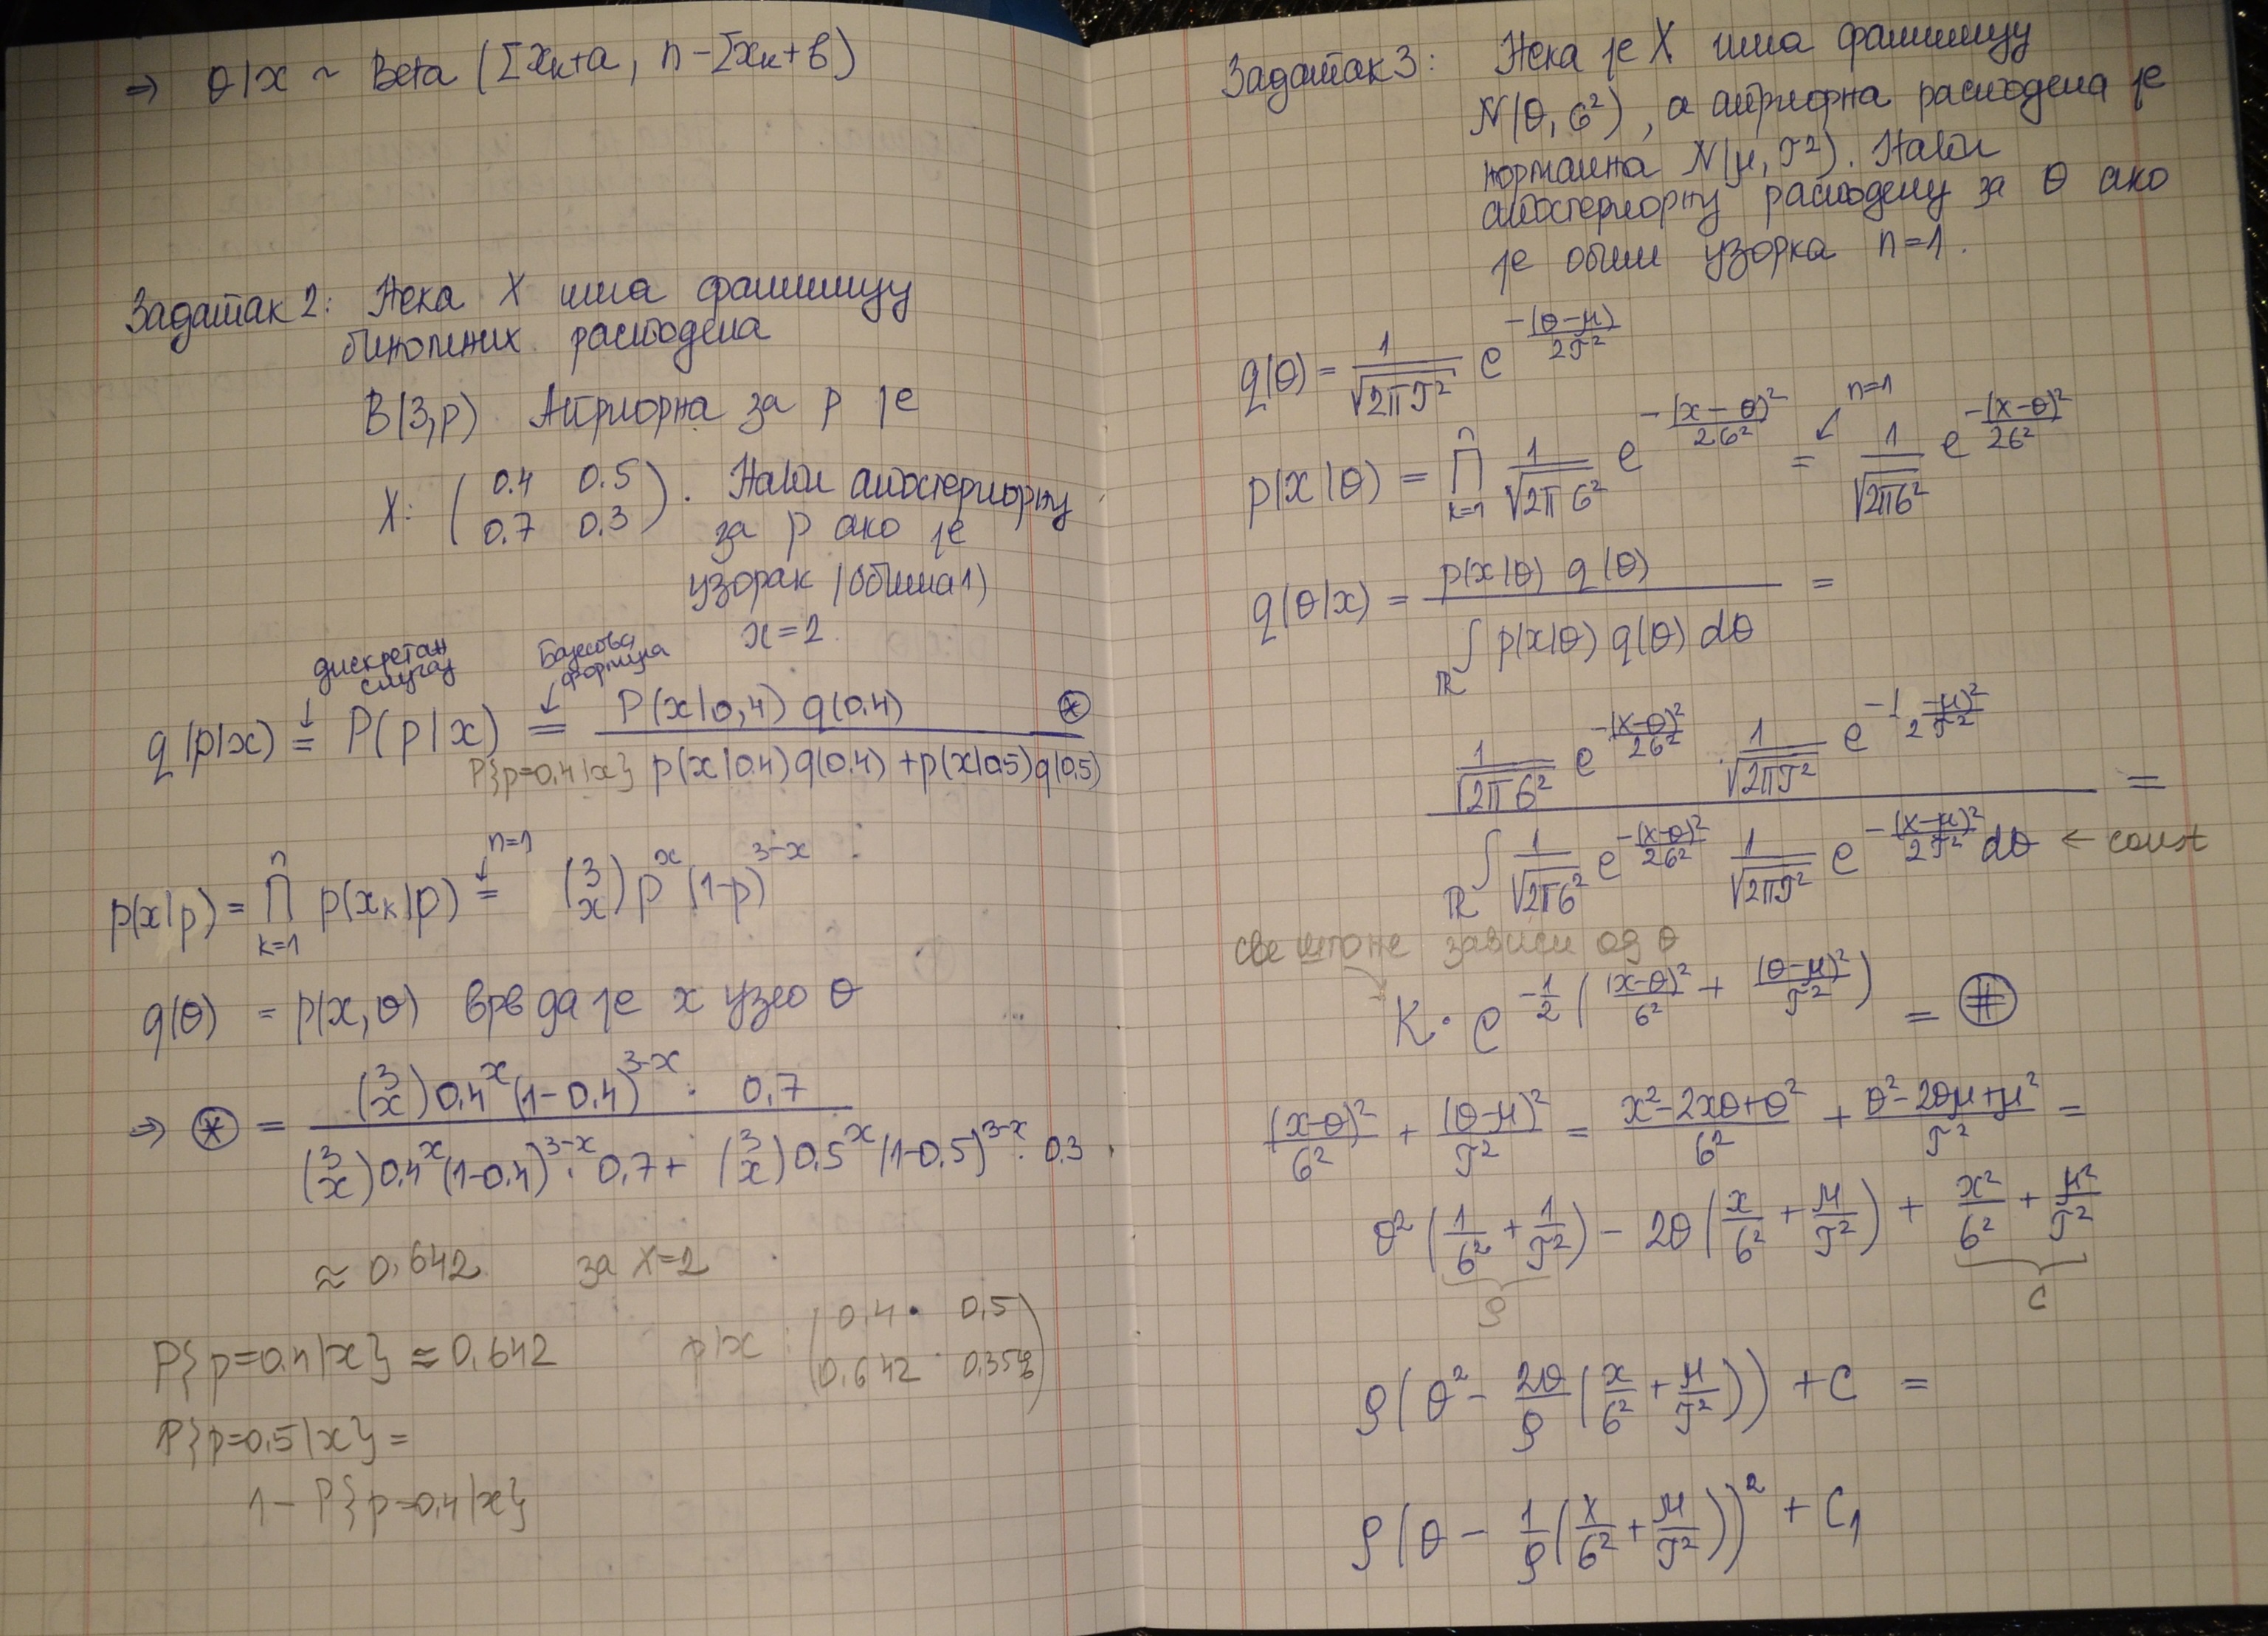 ⇒ θ|x ~ Beta (Σxₖ+a, n-Σxₖ+b)
Задатак 2: Нека X има фамилију
биномних расподела
B(3,p). Априорна за p је
X: ( 0.4 0.5 ; 0.7 0.3 ). Наћи апостериорну
за p ако је
узорак (обима 1)
x=2.
дискретан случај
Бајесова формула
q(p|x) = P(p|x) = P(x|0,4) q(0.4) / p(x|0.4)q(0.4)+p(x|0.5)q(0.5) ⊛
P{p=0.4|x}
n=1
p(x|p) = ∏_{k=1}^{n} p(xₖ|p) = (3 x) p^x (1-p)^{3-x}
q(θ) = p(x,θ) врв да је x узео θ
⇒ ⊛ = (3 x) 0.4^x (1-0.4)^{3-x} · 0,7 / (3 x) 0.4^x (1-0.4)^{3-x} · 0,7 + (3 x) 0.5^x (1-0.5)^{3-x} · 0.3
≈ 0.642 за x=2
P{p=0.4|x} ≈ 0.642 p|x : ( 0.4 0.5 ; 0.642 0.358 )
P{p=0.5|x} =
1 - P{p=0.4|x}
Задатак 3: Нека је X има фамилију
N(θ, σ²), а априорна расподела је
нормална N(μ, τ²). Наћи
апостериорну расподелу за θ ако
је обим узорка n=1.
q(θ) = 1/√(2πτ²) e^{-(θ-μ)/2τ²}
n=1
p(x|θ) = ∏_{k=1}^{n} 1/√(2πσ²) e^{-(x-θ)²/2σ²} = 1/√(2πσ²) e^{-(x-θ)²/2σ²}
q(θ|x) = p(x|θ) q(θ) / ∫_ℝ p(x|θ) q(θ) dθ =
1/√(2πσ²) e^{-(x-θ)²/2σ²} · 1/√(2πτ²) e^{-( -μ)²/2τ²} / ∫_ℝ 1/√(2πσ²) e^{-(x-θ)²/2σ²} 1/√(2πτ²) e^{-(x-μ)²/2τ²} dθ ← const =
све што не зависи од θ
K · e^{-1/2 ( (x-θ)²/σ² + (θ-μ)²/τ² )} = ⊕#
(x-θ)²/σ² + (θ-μ)²/τ² = x²-2xθ+θ²/σ² + θ²-2θμ+μ²/τ² =
θ² (1/σ² + 1/τ²) - 2θ (x/σ² + μ/τ²) + x²/σ² + μ²/τ²
ρ C
ρ (θ² - 2θ/ρ (x/σ² + μ/τ²)) + C =
ρ (θ - 1/ρ (x/σ² + μ/τ²))² + C₁